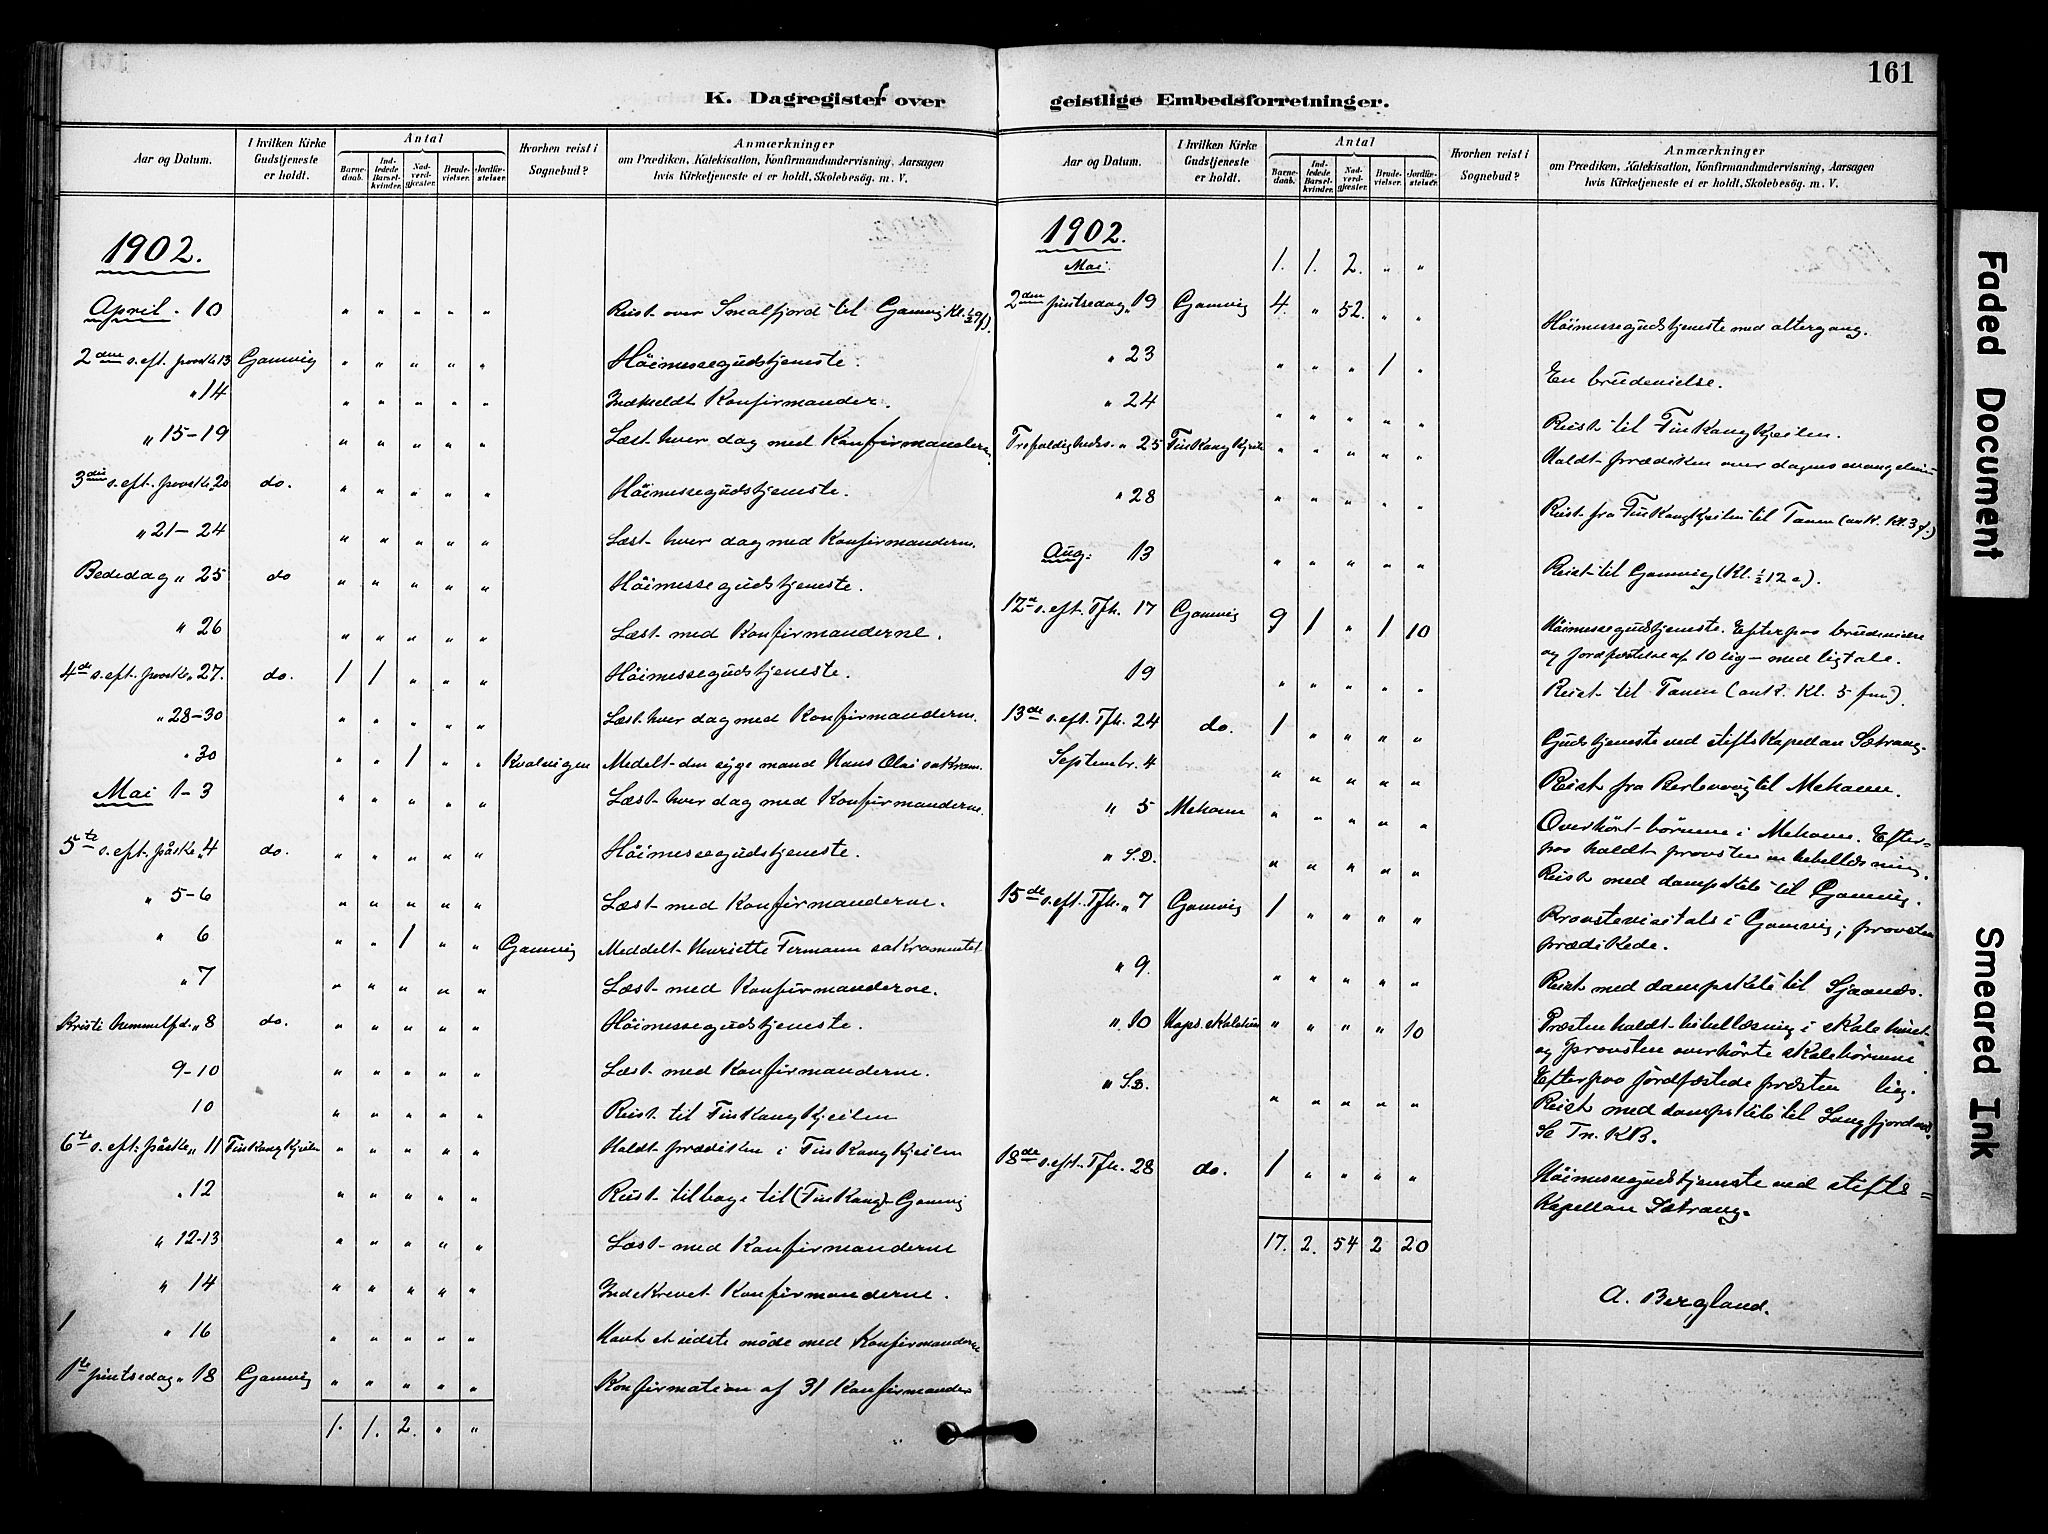 K. Dagregister over
Aar og Datum.
I hvilken Kirke Gudstjeneste er holdt.
Antal
Barnedaab.
Indledede Barselkvinder.
Nadverdgjester.
Brudevielser.
Jordfæstelser.
Hvorhen reist i Sognebud?
Anmærkninger
om Prædiken, Katekisation, Konfirmandundervisning, Aarsagen
hvis Kirketjeneste ei er holdt, Skolebesög. m. V.
1902.
April. 10 " " " " " Reist over Smalfjord til Gamvig Kl. ½9 f).
2den s. eft. paaske 13 Gamvig " " " " " Höimessegudstjeneste.
" 14 " " " " " Indmeldt Konfirmander.
" 15-19 " " " " " Læst hver dag med Konfirmanderne.
3die s. eft. paaske 20 do. " " " " " Höimessegudstjeneste.
" 21-24 " " " " " Læst hver dag med Konfirmanderne.
Bededag " 25 do " " " " " Höimessegudstjeneste.
" 26 " " " " " Læst med Konfirmanderne.
4de s. eft. paaske " 27. do. 1 1 " " " Höimessegudstjeneste.
" 28-30 " " " " " Læst hver dag med Konfirmanderne.
" 30 " " 1 " " Kvalvigen Medelt den syge mand Hans Olai sakram.
Mai 1-3 " " " " " Læst hver dag med Konfirmanderne.
5te s. eft. påske " 4 do. " " " " " Höimessegudstjeneste.
" 5-6 " " " " " Læst med Konfirmanderne.
" 6 " " 1 " " Gamvig Meddelt Henriette Fermann sakramentet
" 7 " " " " " Læst med Konfirmanderne.
Kristi himmelf.d. " 8 do. " " " " " Höimessegudstjeneste.
9-10 " " " " " Læst med Konfirmanderne.
10 " " " " " Reist til Finkongkjeilen
6te s. eft. påske " 11 Finkongkjeilen " " " " " Holdt prædiken i Finkongkjeilen
" 12 " " " " " Reist tilbage til (Finkong) Gamvig
" 12-13 " " " " " Læst med Konfirmanderne
" 14 " " " " " Indskrevet Konfirmanderne.
1 " 16 " " " " " Havt et sidste møde med Konfirmanderne
1ste pintsedag " 18 Gamvig " " " " " Konfirmation af 31 Konfirmander
1. 1. 2. " "
161
geistlige Embedsforretninger.
Aar og Datum.
I hvilken Kirke Gudstjeneste er holdt.
Antal
Barnedaab.
Indledede Barselkvinder.
Nadverdgjester.
Brudevielser.
Jordfæstelser.
Hvorhen reist i Sognebud?
Anmærkninger
om Prædiken, Katekisation, Konfirmandundervisning, Aarsagen
hvis Kirketjeneste ei er holdt, Skolebesög. m. V.
1902.
Mai. 1. 1. 2. " "
2den pintsedag " 19 Gamvig 4. " 52. " " Höimessegudstjeneste med altergang.
" 23 " " " 1 " En brudevielse.
" 24 " " " " " Reist til Finkongkjeilen.
Trefoldigheds. " 25 Finkongkjeile " " " " " Holdt prædiken over dagens evangelium
" 28 " " " " " Reist fra Finkongkjeilen til Tanen (ank. kl. 3 f.)
Aug: 13 " " " " " Reist til Gamvig (Kl. ½12 e).
12te s. eft. Tfh. 17 Gamvig 9 1 " 1 10 Höimessegudstjeneste. Efterpaa brudevielse
og jordfæstelse af 10 lig – med ligtale.
19 " " " " " Reist til Tanen (ank. Kl. 5 fm)
13de s. eft. Tfh. 24 do. 1 " " " " Gudstjeneste ved stiftskapellan Sætrang.
Septembr. 4 " " " " " Reist fra Berlevaag til Mehavn.
" 5 Mehavn " " " " " Overhört börnene i Mehavn. Efter-
paa holdt provsten en bibellæsning.
" S.D. " " " " " Reist med dampskib til Gamvig.
15de s. eft. Tfh. " 7 Gamvig 1 " " " " Provstevisitats i Gamvig; provsten
prædikede.
" 9. " " " " " Reist med dampskib til Sjaanæs.
" 10 Hops. skolehus " " " " 10 Præsten holdt bibellæsning i skolehuset
og provsten overhörte skolebörnene
Efterpaa jordfæstede præsten lig.
" S.D. " " " " " Reist med dampskib til Langfjordnæs.
Se Tn. KB.
18de s. eft. Tfh. 28 do. 1 " " " " Höimessegudstjeneste ved stifts=
kapellan Sætrang.
17. 2. 54 2 20
A. Bergland.
Faded Document
Smeared Ink